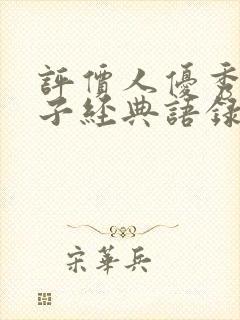 評價人優秀
子經典語錄
宋華兵